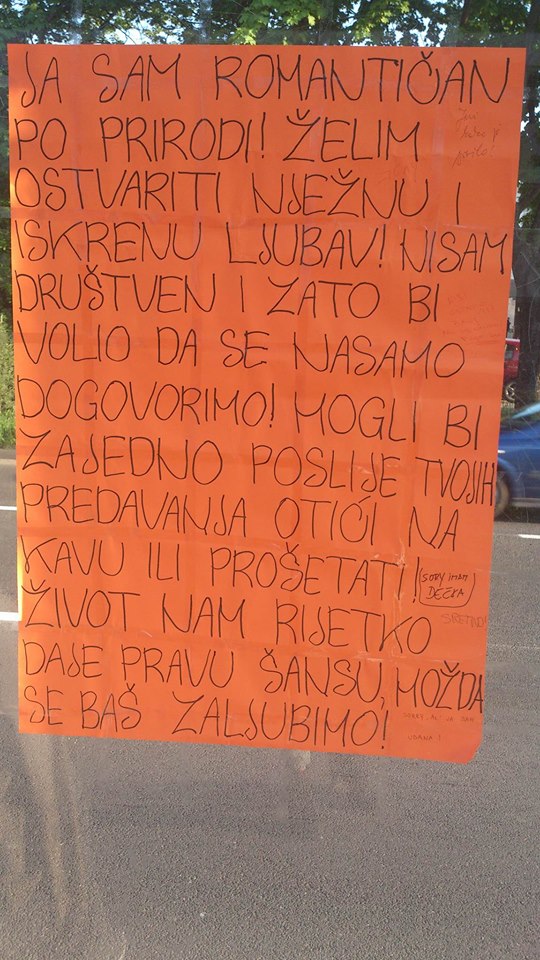 JA SAM ROMANTIČAN
PO PRIRODI! ŽELIM
OSTVARITI NJEŽNU I
ISKRENU LJUBAV! NISAM
DRUŠTVEN I ZATO BI
VOLIO DA SE NASAMO
DOGOVORIMO! MOGLI BI
ZAJEDNO POSLIJE TVOJIH
PREDAVANJA OTIĆI NA
KAVU ILI PROŠETATI!
SORY IMAM
DEČKA
ŽIVOT NAM RIJETKO
DAJE PRAVU ŠANSU, MOŽDA
SE BAŠ ZALJUBIMO!
SORRY, AL' JA SAM
UDANA!